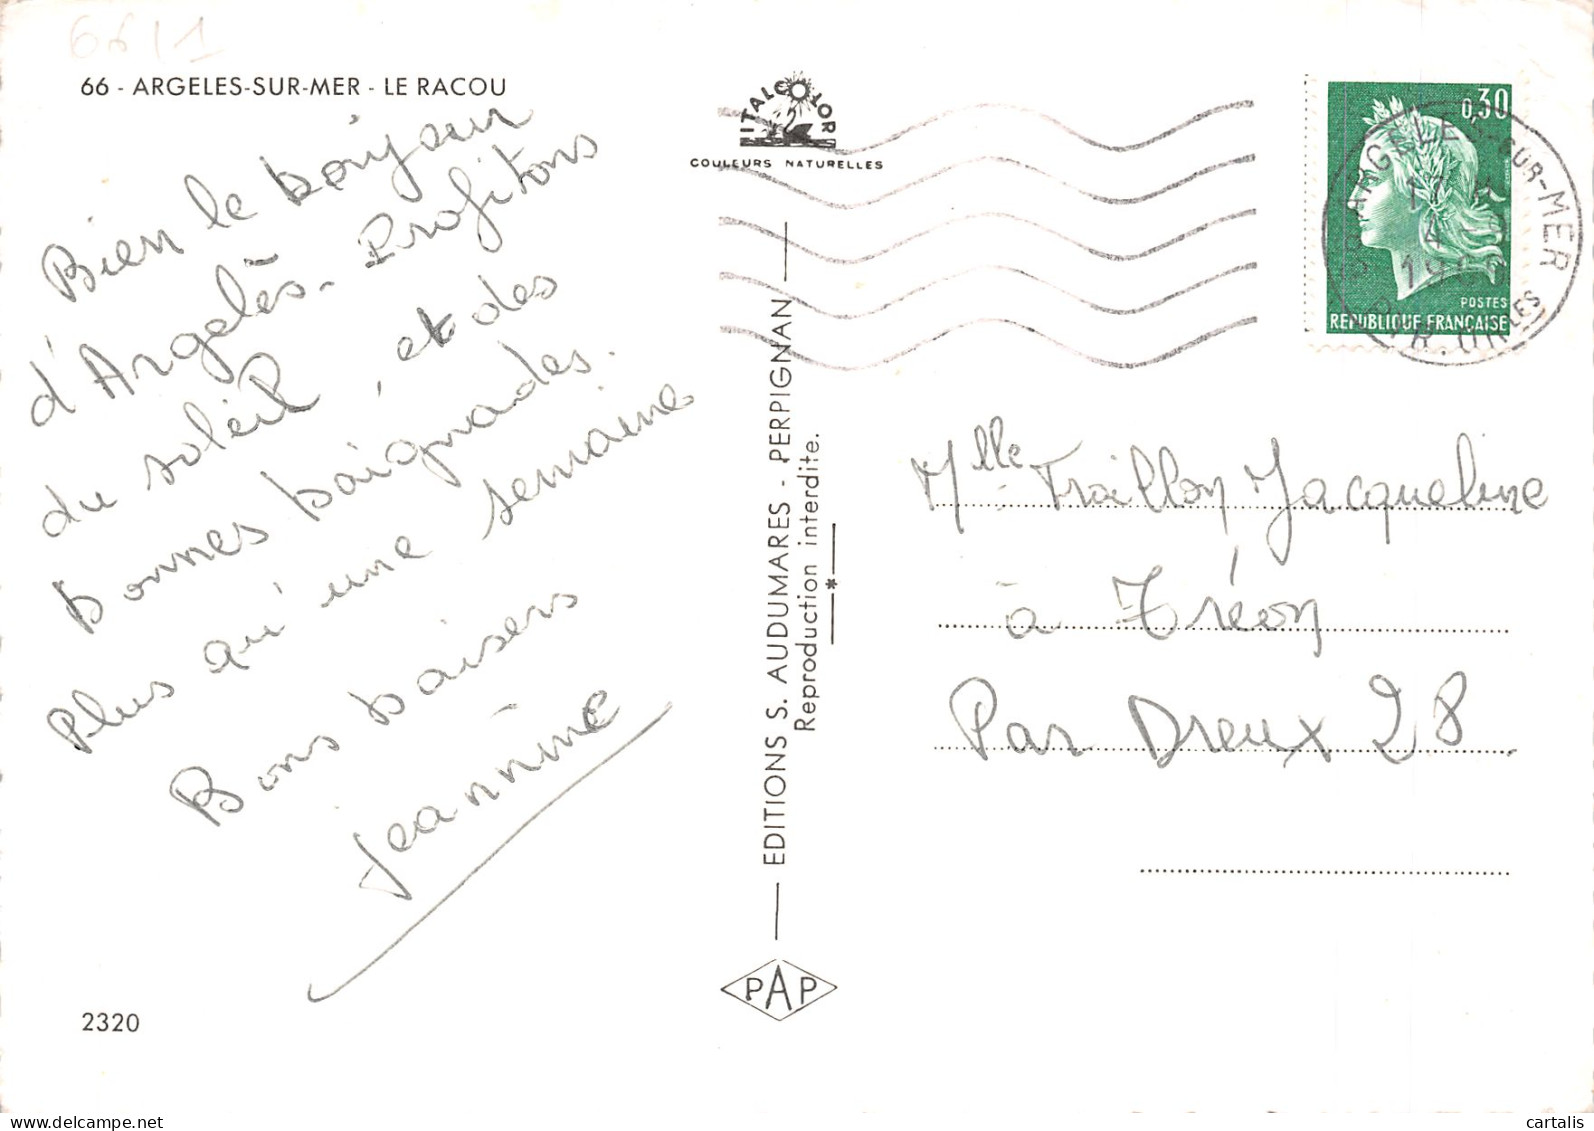 66 11
66 - ARGELES-SUR-MER - LE RACOU
Bien le bonjour
d'Argelès. Profitons
du soleil, et des
bonnes baignades.
Plus qu'une semaine
Bons baisers
Jeannine
2320
ITALCOLOR
COULEURS NATURELLES
EDITIONS S. AUDUMARES - PERPIGNAN
Reproduction interdite.
PAP
0,30
POSTES
REPUBLIQUE FRANÇAISE
ARGELES-SUR-MER
17 H
4
PYR. ORLES
Mlle Traillon Jacqueline
à Tréon
Par Dreux 28
cartalis